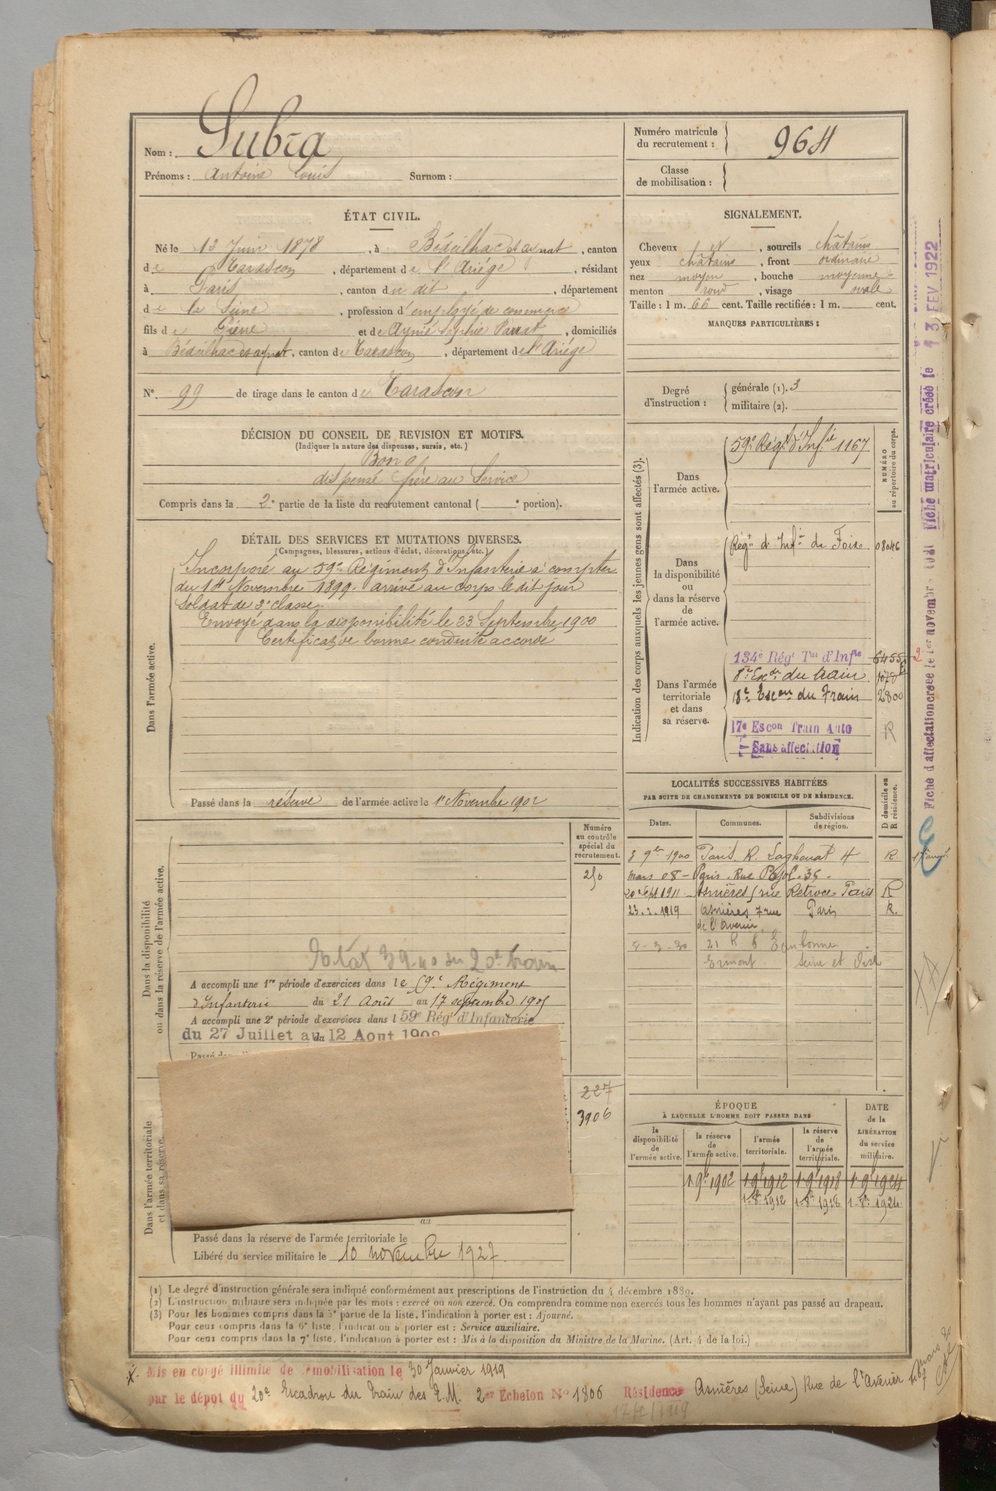 Nom : Subra
Prénoms : Antoine Louis Surnom :
Numéro matricule du recrutement : 964
Classe de mobilisation :
ÉTAT CIVIL.
Né le 12 Juin 1878, à Bédeilhac et aynat, canton
de Tarascon, département de l'Ariége, résidant
à Paris, canton du dit, département
de la Seine, profession d'employé de commerce
fils de Pierre et de Aynié Sophie, domiciliés
à Bédeilhac et aynat, canton de Tarascon, département de l'Ariége
N° 99 de tirage dans le canton de Tarascon
SIGNALEMENT.
Cheveux et, sourcils châtains
yeux châtains, front ordinaire
nez moyen, bouche moyenne
menton rond, visage ovale
Taille : 1 m. 66 cent. Taille rectifiée : 1 m. cent.
MARQUES PARTICULIÈRES :
Degré d'instruction : générale (1). 3
militaire (2).
DÉCISION DU CONSEIL DE REVISION ET MOTIFS.
(Indiquer la nature des dispenses, sursis, etc.)
Bon
dispensé frère au Service
Compris dans la 2e partie de la liste du recrutement cantonal ( e portion).
DÉTAIL DES SERVICES ET MUTATIONS DIVERSES.
(Campagnes, blessures, actions d'éclat, décorations, etc.)
Dans l'armée active.
Incorporé au 59e Régiment d'Infanterie à compter
du 14 Novembre 1899. arrivé au corps le dit jour
Soldat de 2e classe.
Envoyé dans la disponibilité le 23 Septembre 1900
Certificat de bonne conduite accordé
Passé dans la réserve de l'armée active le 1er Novembre 1902
Indication des corps auxquels les jeunes gens sont affectés (3).
NUMÉRO au répertoire du corps.
Dans l'armée active. 59e Régt d'Infie 1167
Dans la disponibilité ou dans la réserve de l'armée active. Régt d'Inf. de Foix 08046
Dans l'armée territoriale et dans sa réserve.
134e Régt Tal d'Infie 6455
8e Escn du train
18e Escon du Train 2800
17e Escon Train Auto R
Sans affectation
LOCALITÉS SUCCESSIVES HABITÉES
PAR SUITE DE CHANGEMENTS DE DOMICILE OU DE RÉSIDENCE.
Dates. Communes. Subdivisions de région. D domicile ou R résidence.
3 9bre 1900 Paris R. Laghouat 4 R.
mars 08 Paris. Rue Pajol. 35
20 Sept 1911 Asnières Paris R
23.2.1919 Asnières 7 rue de l'Avenir Paris R.
Ermont Seine et Oise
Dans la disponibilité ou dans la réserve de l'armée active.
Numéro au contrôle spécial du recrutement.
250
A accompli une 1re période d'exercices dans le 59e Régiment
d'Infanterie du 21 Août au 17 septembre 1905
A accompli une 2e période d'exercices dans le 59e Régt d'Infanterie
du 27 Juillet au 12 Aout 1908
Dans l'armée territoriale et dans sa réserve.
227
3906
au
Passé dans la réserve de l'armée territoriale le
Libéré du service militaire le 10 novembre 1927.
ÉPOQUE
À LAQUELLE L'HOMME DOIT PASSER DANS
la disponibilité de l'armée active. la réserve de l'armée active. l'armée territoriale. la réserve de l'armée territoriale. DATE de la LIBÉRATION du service militaire.
1. 9b 1902 1. 9b 1912 1. 9b 1918 1. 9b 1924
1. 8b 1912 1. 8b 1918 1. 8b 1924
(1) Le degré d'instruction générale sera indiqué conformément aux prescriptions de l'instruction du 4 décembre 1889.
(2) L'instruction militaire sera indiquée par les mots : exercé ou non exercé. On comprendra comme non exercés tous les hommes n'ayant pas passé au drapeau.
(3) Pour les hommes compris dans la 5e partie de la liste, l'indication à porter est : Ajourné.
Pour ceux compris dans la 6e liste, l'indication à porter est : Service auxiliaire.
Pour ceux compris dans la 7e liste, l'indication à porter est : Mis à la disposition du Ministre de la Marine. (Art. 4 de la loi.)
Mis en congé illimité de démobilisation le 30 Janvier 1919
par le dépôt du 20e Escadron du Train des E.M. 2er Échelon N° 1806 Résidence Asnières (Seine) Rue de l'Avenir n° 7
Fiche d'affectation créée le 1er novembre 1921 Fiche matriculaire créée le 13 FEV 1922